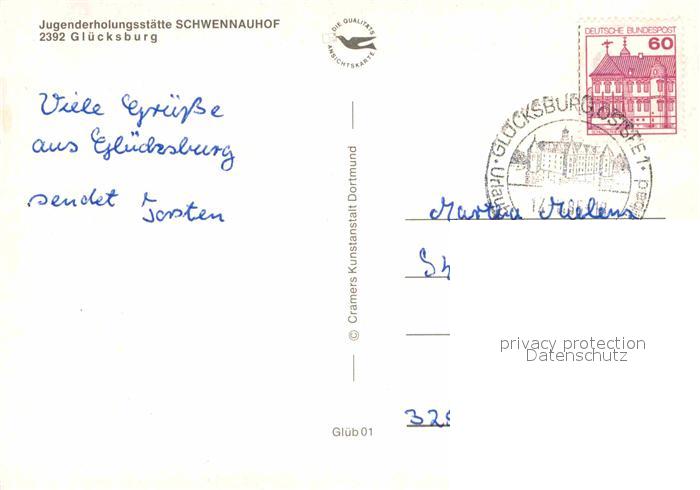 Jugenderholungsstätte SCHWENNAUHOF
2392 Glücksburg
DIE QUALITÄTS
ANSICHTSKARTE
DEUTSCHE BUNDESPOST
60
GLÜCKSBURG, OSTSEE 1
Viele Grüße
aus Glücksburg
sendet Torsten
© Cramers Kunstanstalt Dortmund
Martha
privacy protection
Datenschutz
Glüb 01